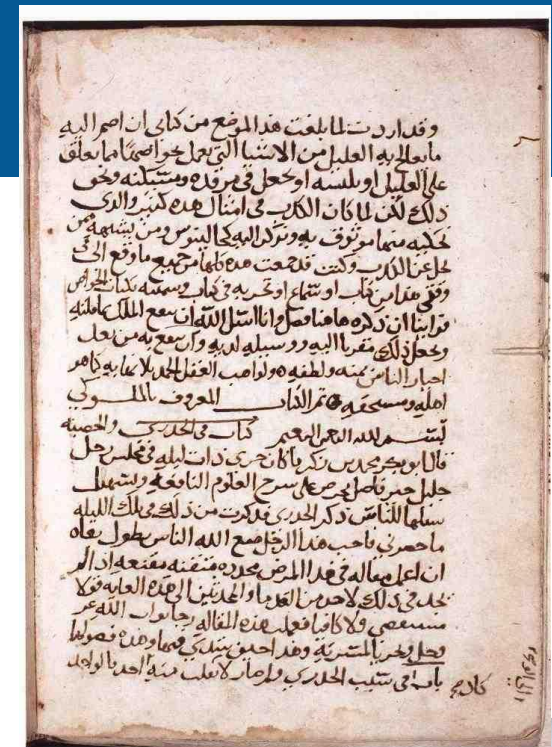 وقد اردت لما بلغت هذا الموضع من كتابي ان اضم اليه
ما يعالج به العليل من الاشيا التي تعمل بخواصها مما يعلق
على العليل او يلبسه او يجعل في مرقده ومسكنه ونحو
ذلك لكن لما كان الكذب في امثال هذه كثير والذي
نحكيه منها موثوق به وتركن اليه كجالينوس ومن يشبهه ممن
يجل عن الكذب وكنت قد جمعت هذه كلها من جميع ما وقع الى
وقتي هذا من كتاب او سماع او تجربه في كتاب وسمته بكتاب الخواص
ان ذكره هاهنا فضل وانا اسل الله ان ينفع الملك بما قلته
ويجعل ذلك مقربا اليه ووسيله لديه وان ينفع به من بعد
اخيار الناس بمنه ولطفه ولواهب العقل الحمد بلا نهايه كما هو
اهله ومستحقه تم الكتاب المعروف بالملوكي
بسم الله الرحمن الرحيم كتاب في الجدري والحصبه
قال ابو بكر محمد بن زكريا كان جرى ذات ليله في مجلس رجل
جليل خير فاضل يحرص على شرح العلوم النافعه وتسهيل
سبلها للناس ذكر الجدري فذكرت من ذلك في تلك الليله
ما حضرني فاحب هذا الرجل متع الله الناس بطول بقاه
ان اعمل مقاله في هذا المرض مجرده متقنه مقنعه اذ لم
يجد في ذلك لاحد من القدما والمحدثين الى هذه الغايه قولا
مستقصي ولا كافيا فعملت هذه المقاله رجا ثواب الله عز
وجل وهذا حين نبتدي فيها وهذه فصولها
باب في سبب الجدري ولم صار لا يفلت منه احد الا الواحد